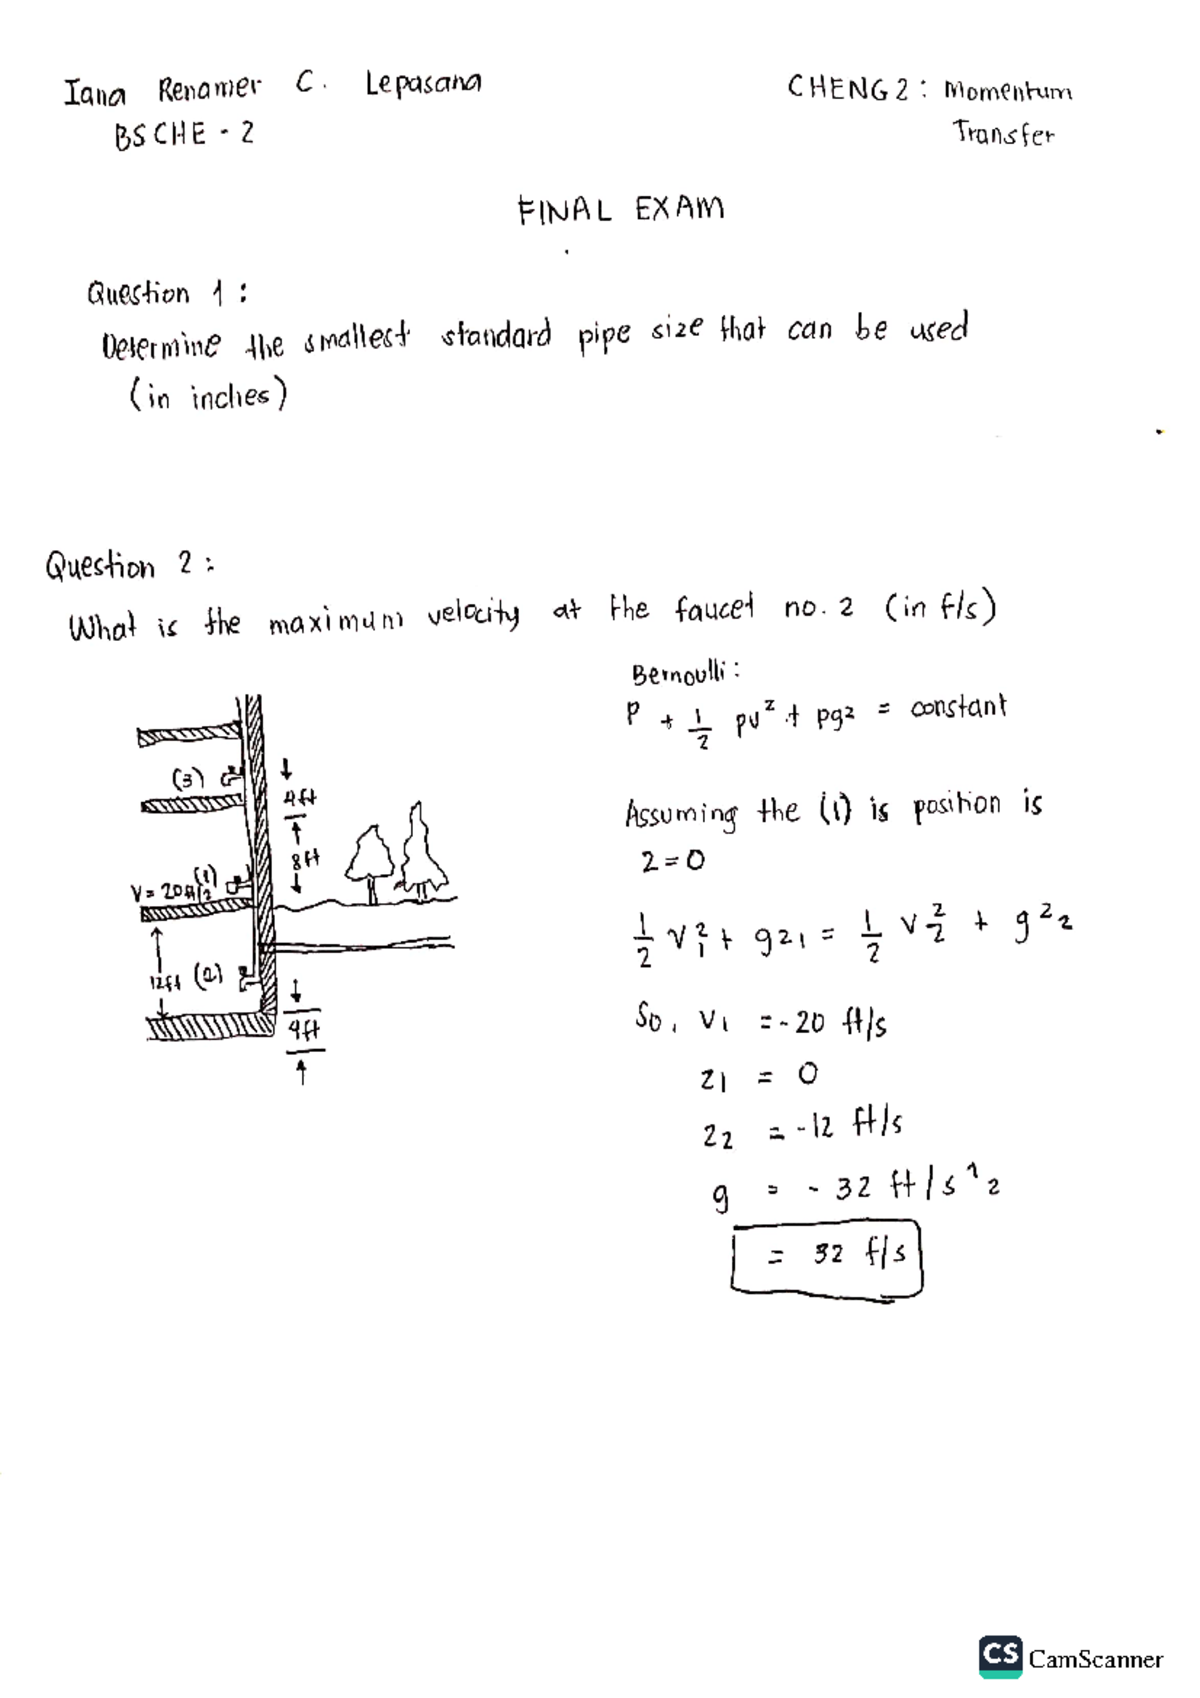 Iana Renamer C. Lepasana
CHENG2: Momentum
BSCHE - 2
Transfer
FINAL EXAM
Question 1:
Determine the smallest standard pipe size that can be used
(in inches)
Question 2:
What is the maximum velocity at the faucet no. 2 (in f/s)
Bernoulli:
P + 1/2 ρv² + ρgz = constant
(3)
4ft
8ft
(1)
V = 20ft/s
12ft
(2)
4ft
Assuming the (1) is position is
z = 0
1/2 V₁² + gz₁ = 1/2 V₂² + gz₂
So, V₁ = -20 ft/s
z₁ = 0
z₂ = -12 ft/s
g = - 32 ft/s^2
= 32 f/s
CS CamScanner